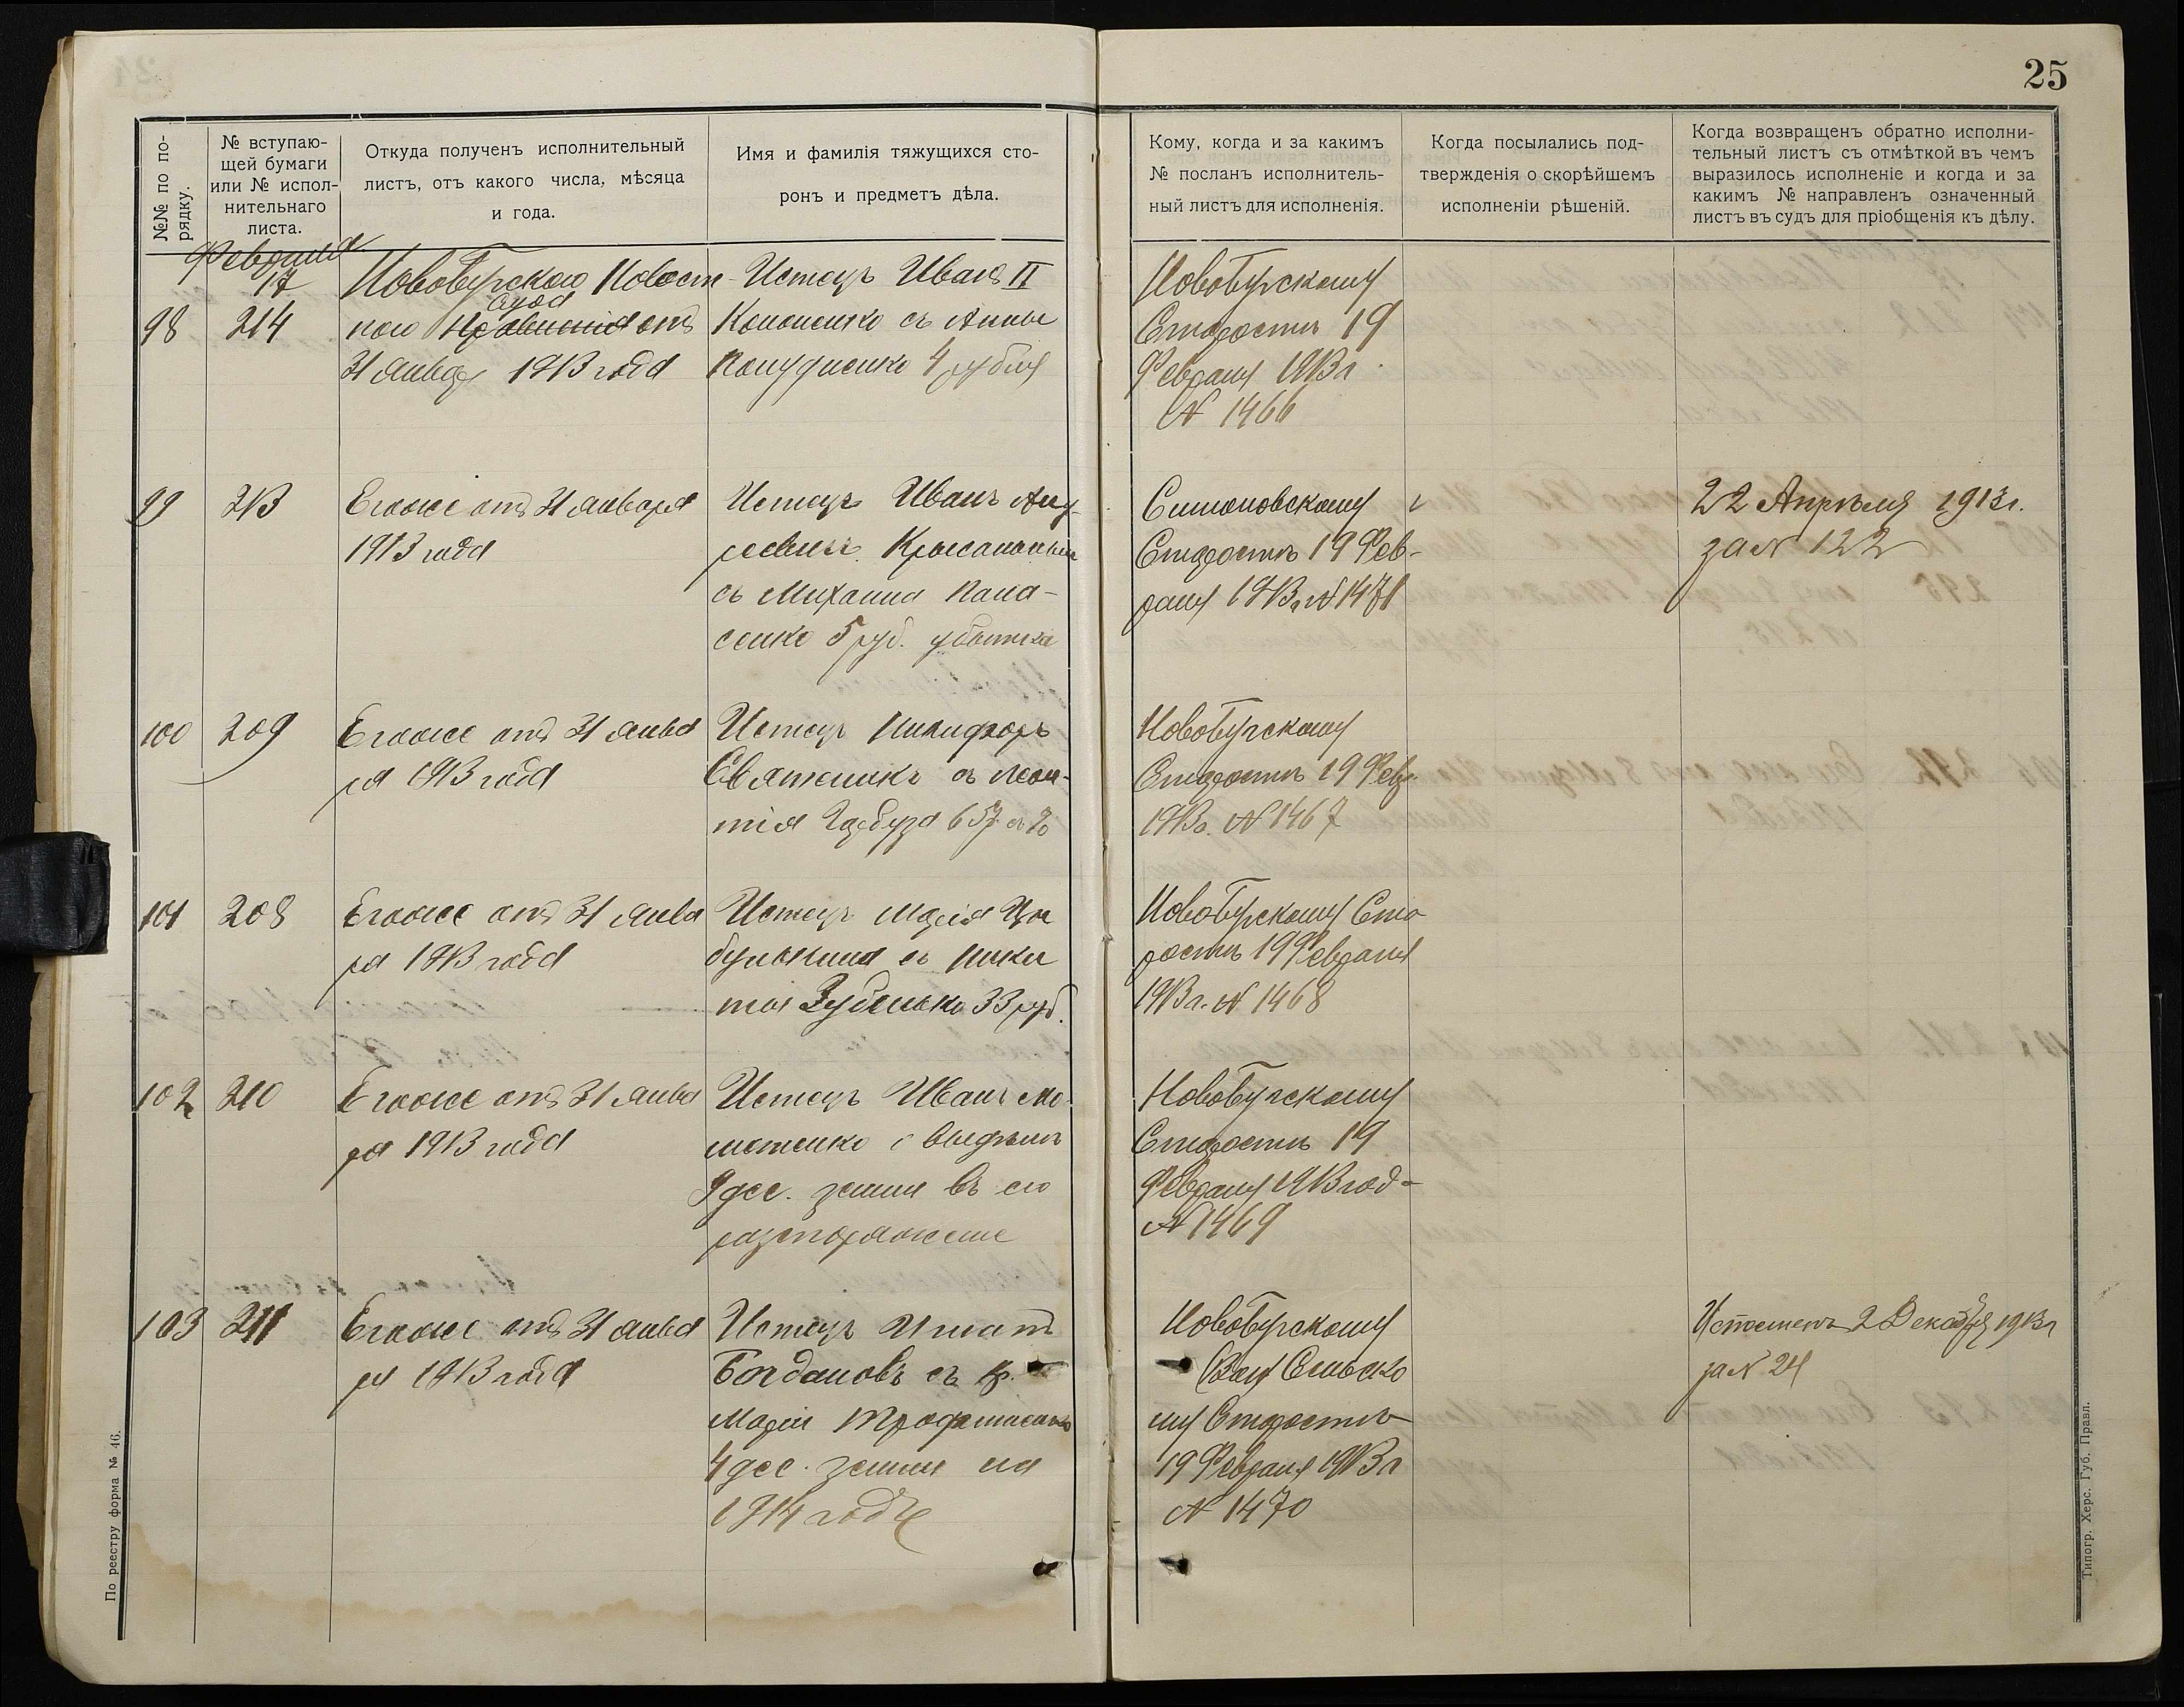 25
№№ по по-
рядку.
№ вступаю-
щей бумаги
или № испол-
нительнаго
листа.
Откуда полученъ исполнительный
листъ, отъ какого числа, мѣсяца
и года.
Имя и фамилія тяжущихся сто-
ронъ и предметъ дѣла.
Кому, когда и за какимъ
№ посланъ исполнитель-
ный листъ для исполненія.
Когда посылались под-
твержденія о скорѣйшемъ
исполненіи рѣшеній.
Когда возвращенъ обратно исполни-
тельный листъ съ отмѣткой въ чемъ
выразилось исполненіе и когда и за
какимъ № направленъ означенный
листъ въ судъ для пріобщенія къ дѣлу.
Февраля
17
98
214
Новобугского Волост
ного Суда отъ
31 Января 1913 года
Истецъ Иванъ II
Кононенко съ Анны
4 рубля
Новобугскому
Старостѣ 19
Февраля 1913 г.
№ 1466
99
213
Его же отъ 31 января
1913 года
Истецъ Иванъ Анд
реевичъ
съ Михаила Пана-
сенко 5 руб. убытка
Старостѣ 19 Фев-
раля 1913 г. № 1471
22 Апрѣля 1913 г.
за № 122
100
209
Его же отъ 31 янва
ря 1913 года
Истецъ Никифоръ
съ Леон-
тія 65 р.
Новобугскому
Старостѣ 19 Февр.
1913 г. № 1467
101
208
Его же отъ 31 янва
ря 1913 года
Истецъ Марія Цы
булькина съ Ники
ты Зубенько 33 руб.
Новобугскому Ста
ростѣ 19 Февраля
1913 г. № 1468
102
210
Его же отъ 31 янва
ря 1913 года
Истецъ Иванъ
о выдѣлѣ
9 дес. земли въ его
распоряженіе
Новобугскому
Старостѣ 19
Февраля 1913 год
№ 1469
103
211
Его же отъ 31 янва
ря 1913 года
Истецъ Игнатъ
Богдановъ съ кр.
Маріи
4 дес. земли на
1914 годъ
Новобугскому
Сельско
му Старостѣ
19 Февраля 1913 г
№ 1470
2 Декабря 1913 г
за № 24
По реестру форма № 46.
Типогр. Херс. Губ. Правл.